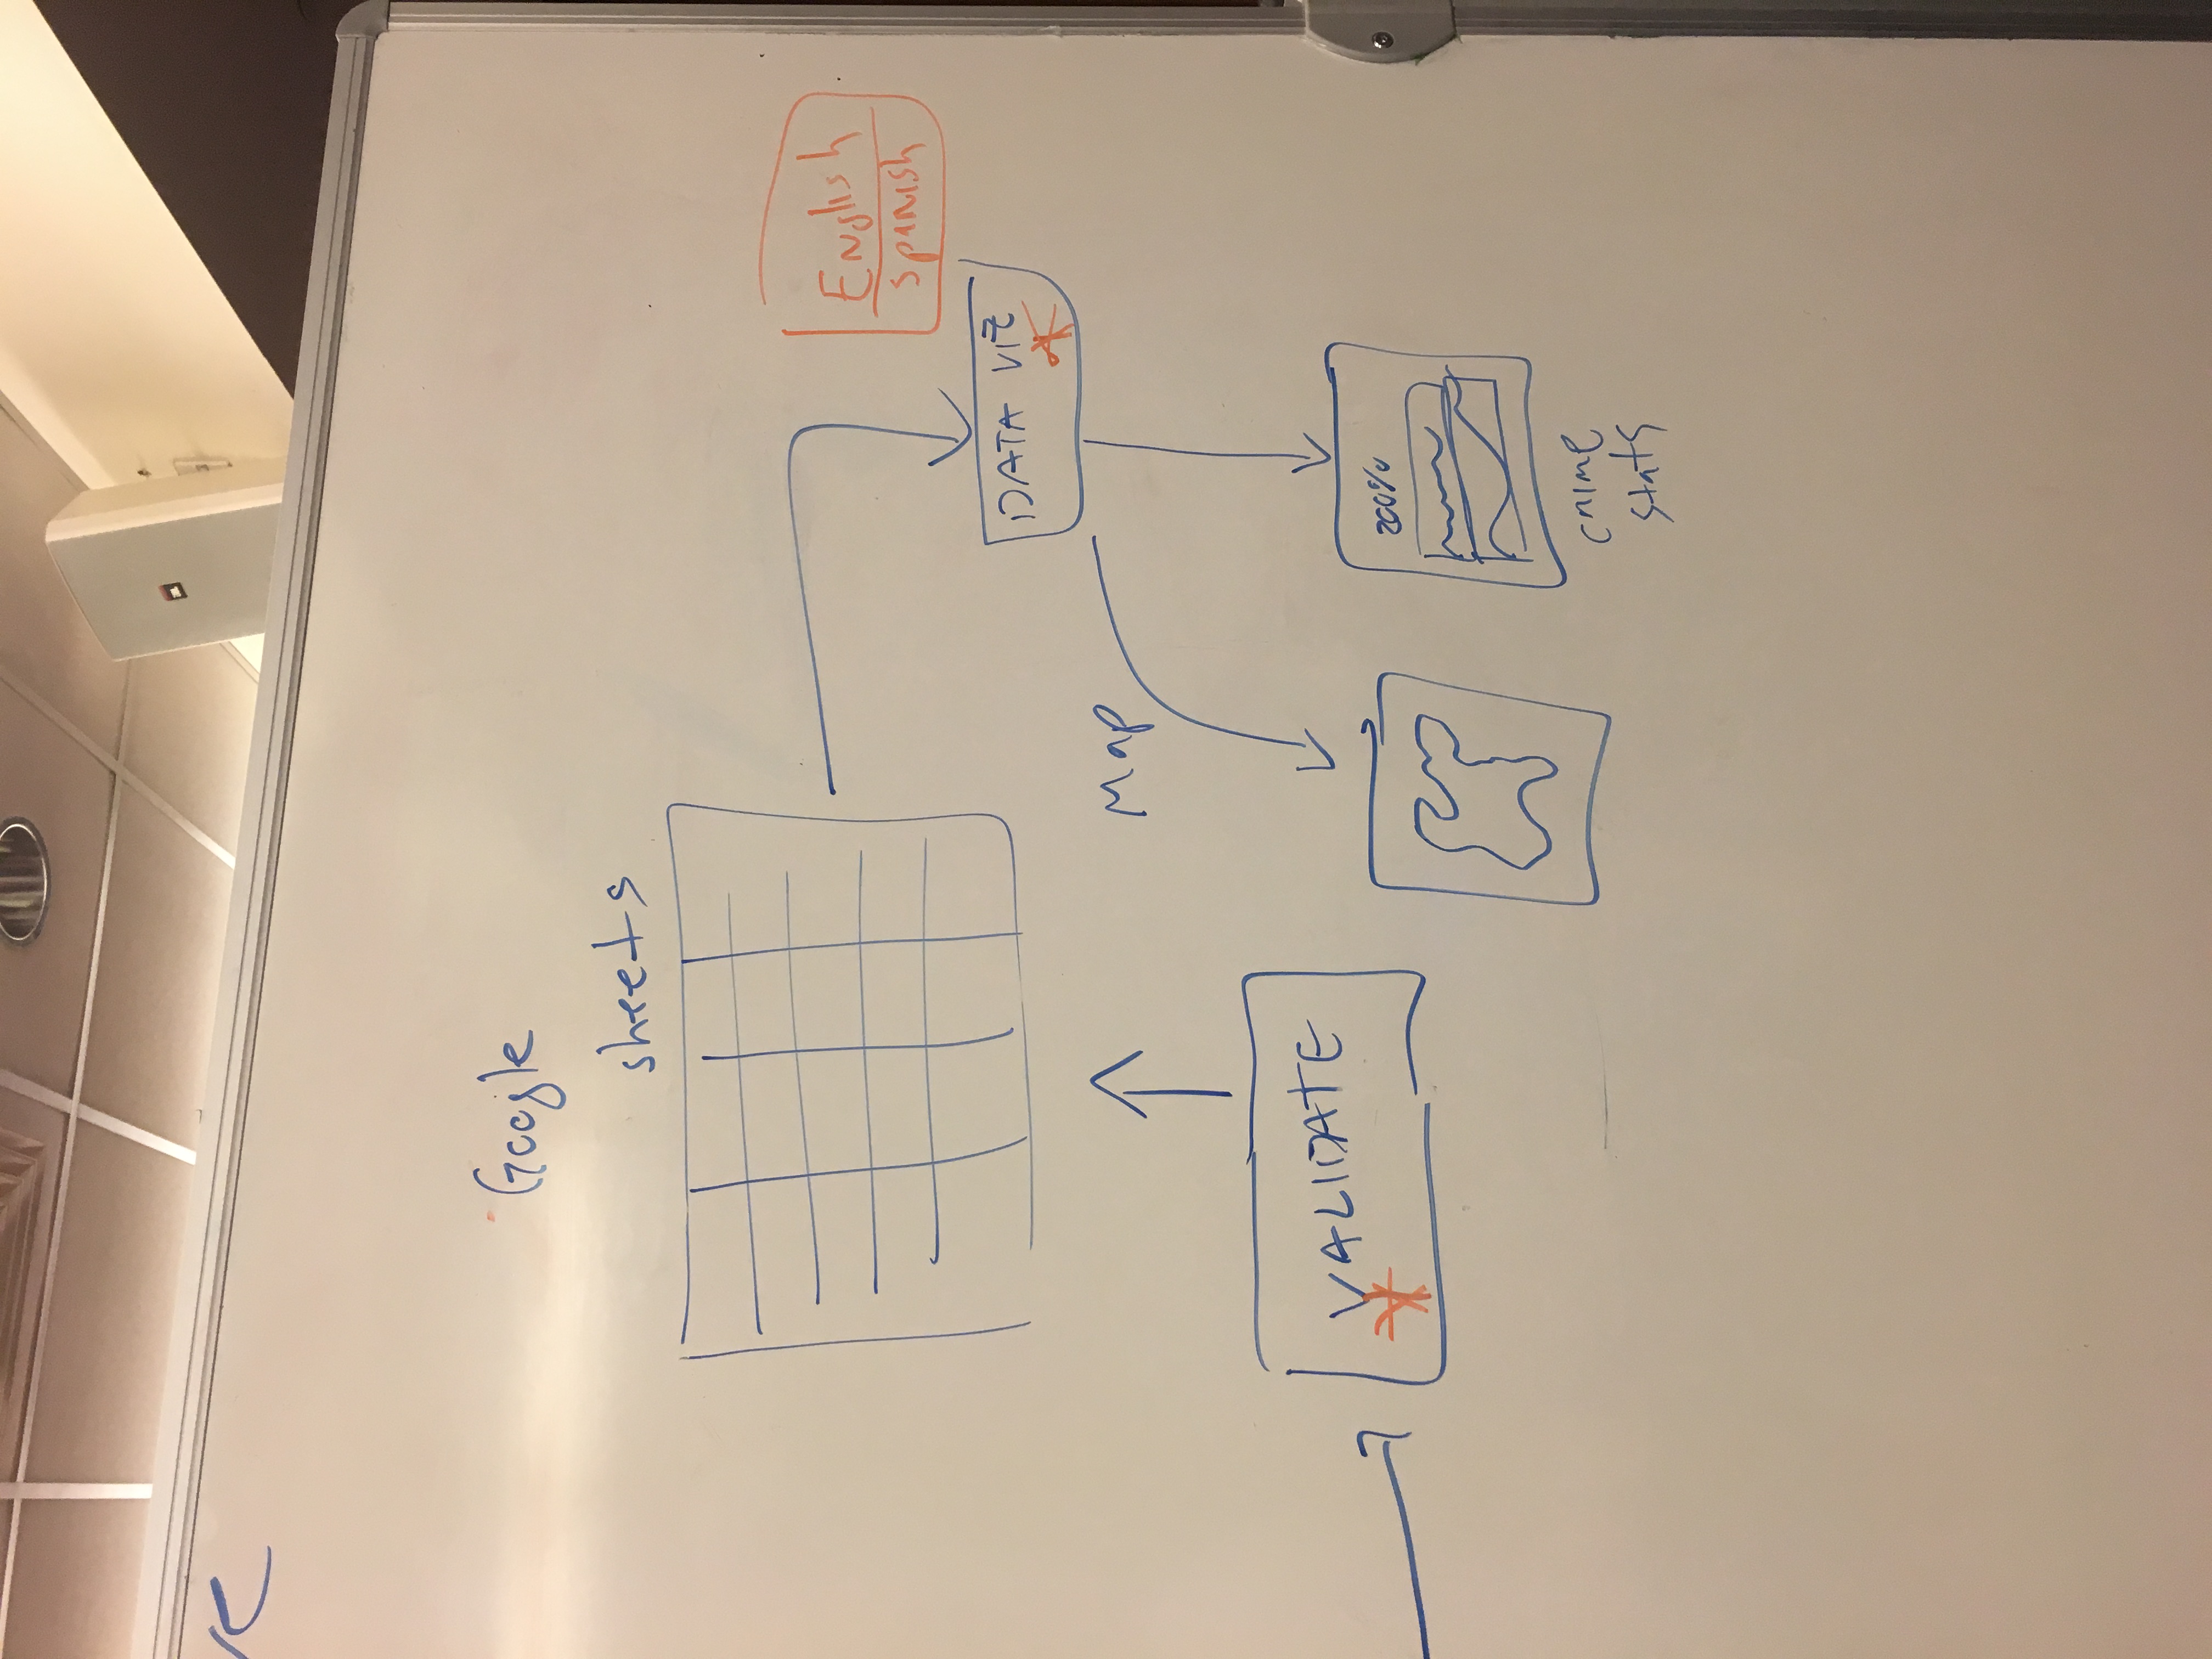 Google
sheets
English
Spanish
DATA VIZ
Map
VALIDATE
200%
crime
stats